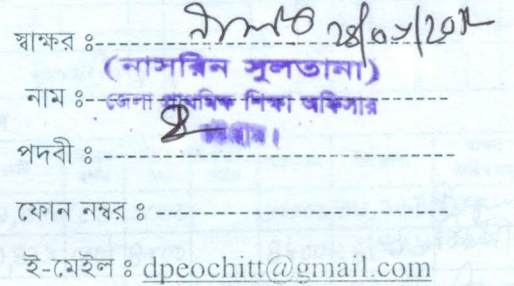 স্বাক্ষর ঃ--------
(নাসরিন সুলতানা)
নাম ঃ-- জেলা প্রাথমিক শিক্ষা অফিসার
পদবী ঃ --------------------------
ফোন নম্বর ঃ ----------------------
ই-মেইল ঃ dpeochitt@gmail.com